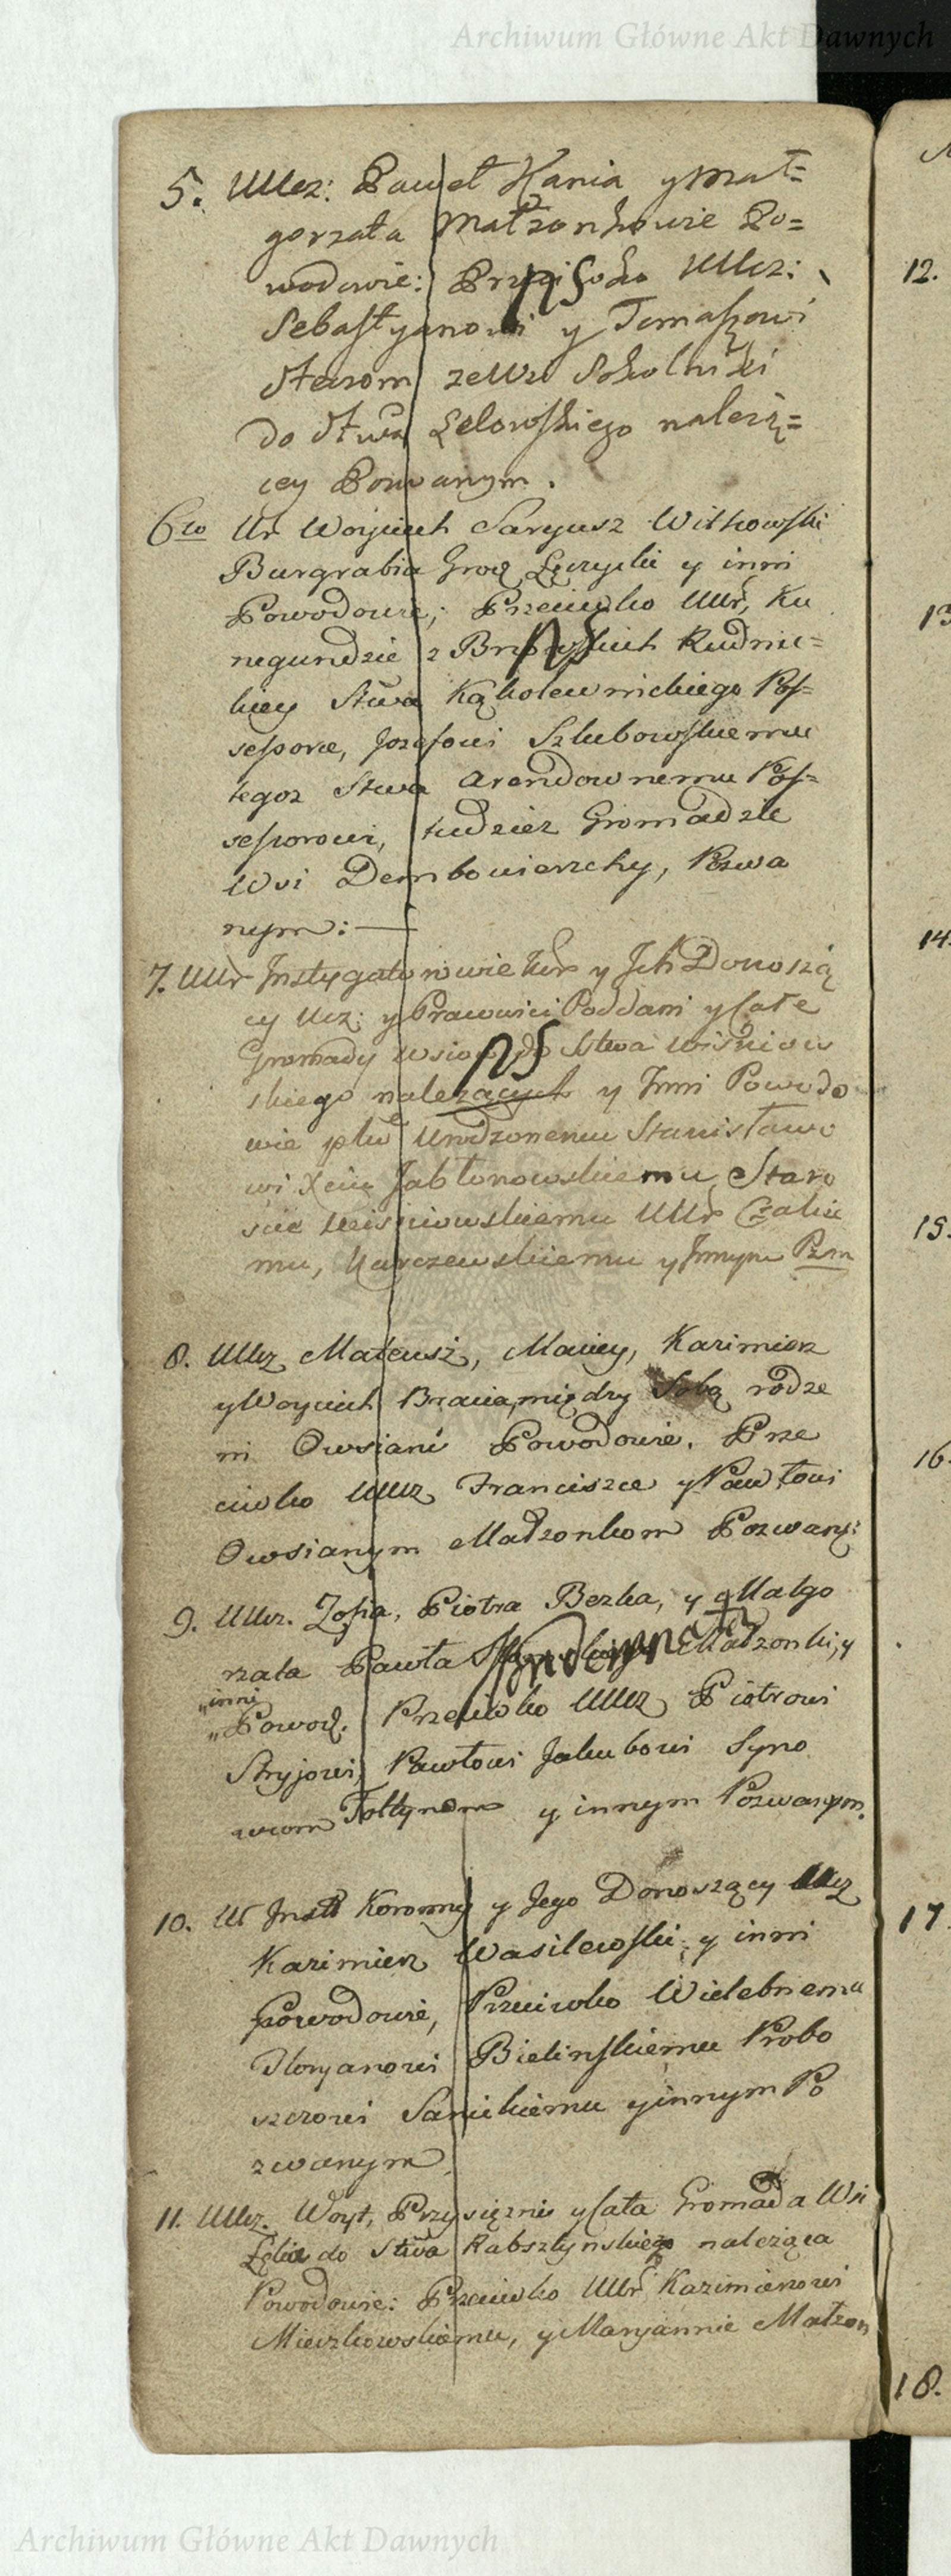 Archiwum Główne Akt Dawnych
5. UUcz: Paweł Kania y Mał=
gorzata Małzonkowie Po=
wodowie: Przeciwko UUcz:
Sebastyanowi y Tomaszowi
Starom ze Wsi Sokolniki
do Stwa Lelowskiego należą=
cey Pozwanym.
6to Ur Woyciech Saryusz Witkowski
Burgrabia Grodz Łęczycki y inni
Powodowie; Przeciwko UUr, Ku
negundzie z Rudnic=
kiey Stwa Kąkolewnickiego Pos=
sessorce, Jozefowi Szlubowskiemu
tegoz Stwa Arendownemu Pos=
sessorowi, tudziez Gromadzie
Wsi Dembowierzchy, Pozwa
nym:—
7. UUr Instygatorowie Kor y Ich Donoszą
cy Ucz: y Prawowici Poddani y Całe
Gromady Wsiow do Stwa Wisniows
kiego nalezących y Inni Powodo
wie plko Urodzonemu Stanisławo
wi Xciu Jabłonowskiemu Staro
scie Wisniowskiemu UUr Czalic
mu, Karczewskiemu y Innym Pzm
8. UUcz Mateusz, Maciey, Kazimierz
y Woyciech Bracia między Sobą rodze
ni Owsiani Powodowie. Prze
ciwko UUcz Franciszce y Pawłowi
Owsianym Małzonkom Pozwany:
9. UUcz. Zofia, Piotra Bezka, y Małgo
rzata Pawła Małzonki, y
"inni
"Powod. Przeciwko UUcz Piotrowi
Stryjowi, Pawłowi Jakubowi Syno
wiom Tołtynom y innym Pozwanym.
10. Ur Inst Koronny y Jego Donoszący Ucz
Kazimierz Wasilewski y inni
Powodowie, Przeciwko Wielebnemu
Floryanowi Bielinskiemu Probo
szczowi Sanickiemu y innym Po
zwanym
11. UUcz. Woyt, Przysięzni y Cała Gromada Wsi
do Stwa Rabsztynskiego naleząca
Powodowie: Przeciwko UUr Kazimierzowi
Mieczkowskiemu, y Maryannie Małzon
12.
13
14.
15.
16.
17.
18.
Archiwum Główne Akt Dawnych